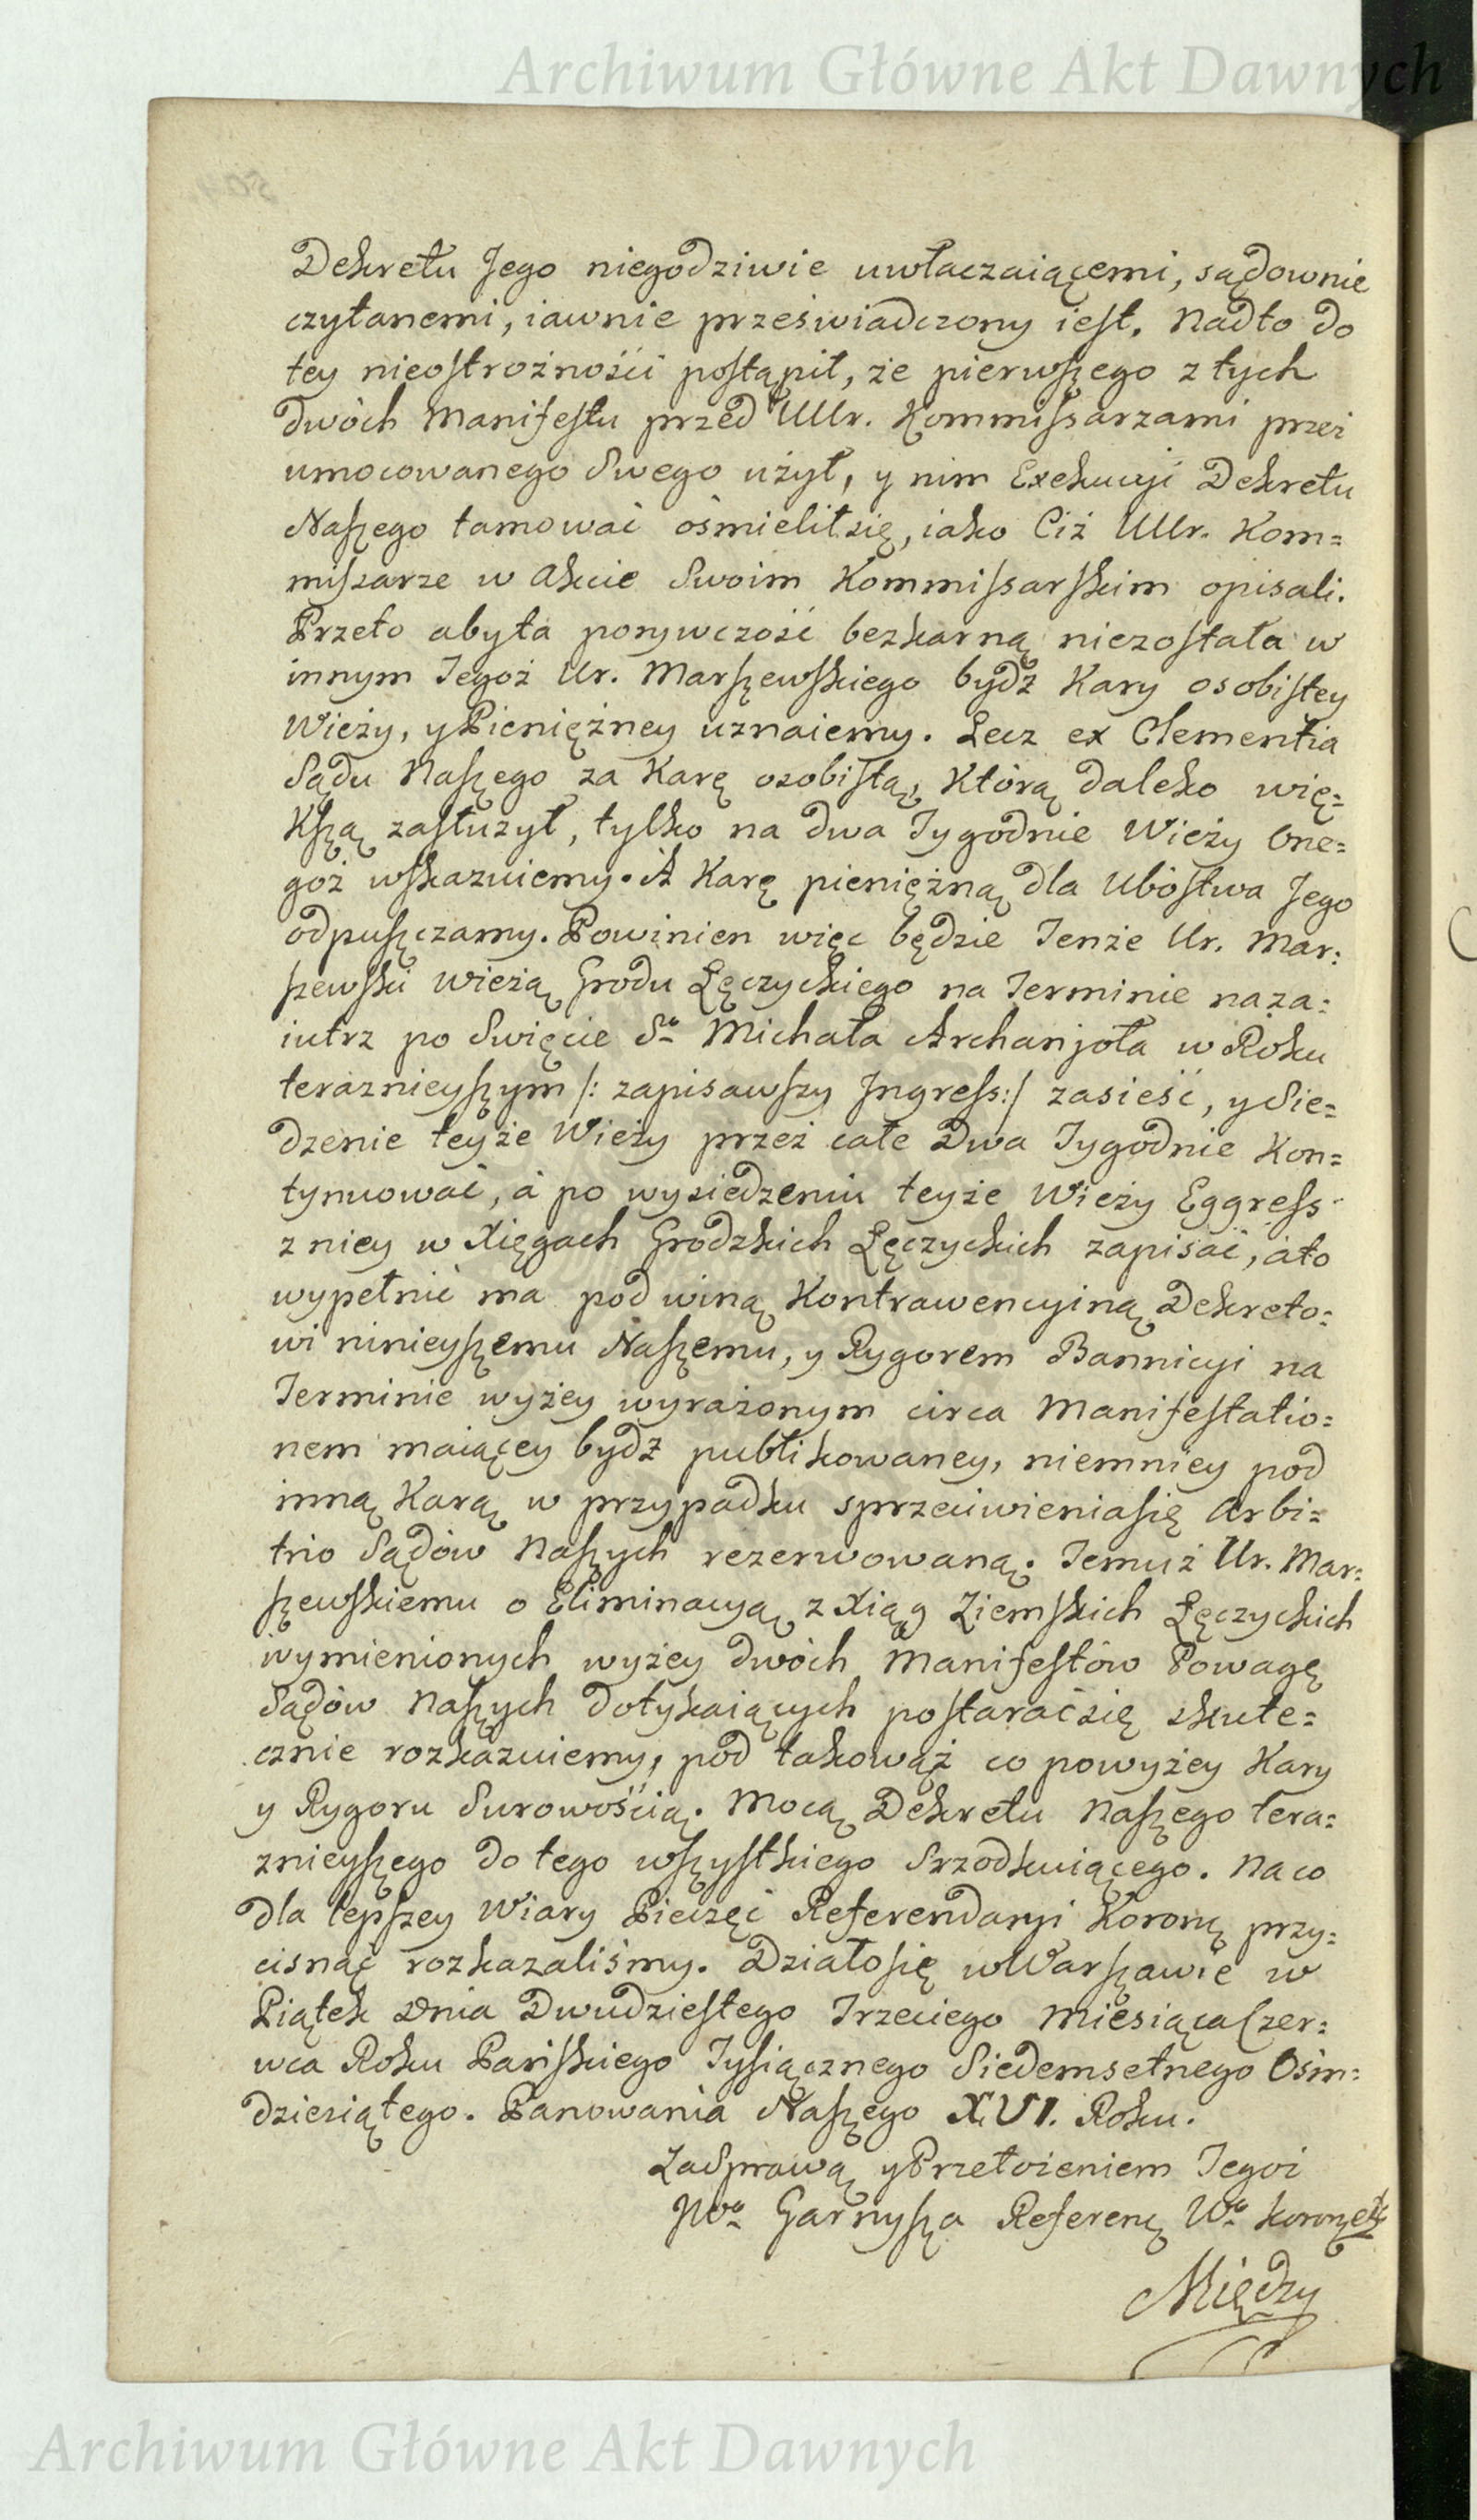 Archiwum Główne Akt Dawnych
Dekretu Jego niegodziwie uwłaczaiącemi, sądownie
czytanemi, iawnie przeswiadczony iest. Nadto do
tey nieostrożności postąpił, że pierwszego z tych
dwóch Manifestu przed Ullr. Kommissarzami przez
umocowanego Swego użył, y nim Exekucyi Dekretu
Naszego tamować ośmielił się, iako Ciż Ullr. Kom=
missarze w Akcie Swoim Kommissarskim opisali.
Przeto aby ta porywczość bezkarną niezostała w
innym Tegoż Ur. Marszewskiego bydź Kary osobistey
Wieży, y Pieniężney uznaiemy. Lecz ex Clementia
Sądu Naszego za Karę osobistą, Którą daleko wię=
Kszą zasłużył, tylko na dwa Tygodnie Wieży One=
goż wskazuiemy. A Karę pieniężną dla Ubóstwa Jego
odpuszczamy. Powinien więc będzie Tenże Ur. Mar:
szewski wieżą Grodu Łęczyckiego na Terminie naza=
iutrz po Swięcie Sgo Michała Archanjoła w Roku
teraznieyszym /: zapisawszy Jngress:/ zasieść, y Sie=
dzenie teyże Wieży przez całe Dwa Tygodnie Kon=
tynuować, à po wysiedzeniu teyże Wieży Eggress
z niey w Xięgach Grodzkich Łęczyckich zapisać, à to
wypełnić ma pod winą Kontrawencyiną Dekreto:
wi ninieyszemu Naszemu, y Rygorem Bannicyi na
Terminie wyżey wyrażonym circa Manifestatio=
nem maiącey bydź publikowaney, niemniey pod
inną Karą w przypadku sprzeciwienia się Arbi=
trio Sądów Naszych rezerwowaną. Temuż Ur. Mar=
szewskiemu o Eliminacyą z Xiąg Ziemskich Łęczyckich
wymienionych wyżey dwóch Manifestów Powagę
Sądów Naszych dotykaiących postarać się skute=
cznie rozkazuiemy, pod takowąż co powyżey Kary
y Rygoru Surowością. Mocą Dekretu Naszego tera=
znieyszego do tego wszystkiego Srzodkuiącego. Na co
dla lepszey Wiary Pieczęć Referendaryi Koronę przy=
cisnąć rozkazaliśmy. Działo się w Warszawie w
Piątek Dnia Dwudziestego Trzeciego Miesiąca Czer=
wca Roku Pańskiego Tysiącznego Siedemsetnego Ośm=
dziesiątego. Panowania Naszego XVI. Roku.
Za Sprawą y Przełożeniem Tegoż
JWo Garnysza Referenę Wo
Między
Archiwum Główne Akt Dawnych